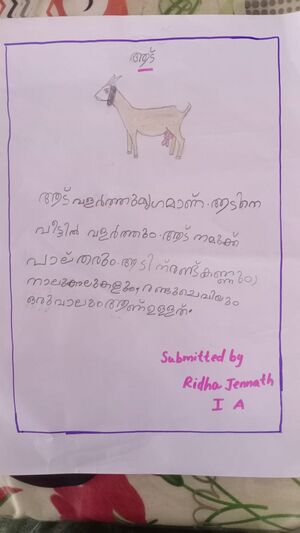 ആട്
ആട് വളർത്തുമൃഗമാണ്. ആടിനെ
വീട്ടിൽ വളർത്തും. ആട് നമുക്ക്
പാല് തരും. ആടിന് രണ്ട് കണ്ണും
നാലുകാലുകളും, രണ്ടുചെവിയും
ഒരുവാലും ആണ് ഉള്ളത്.
Submitted by
Ridha Jennath
I A